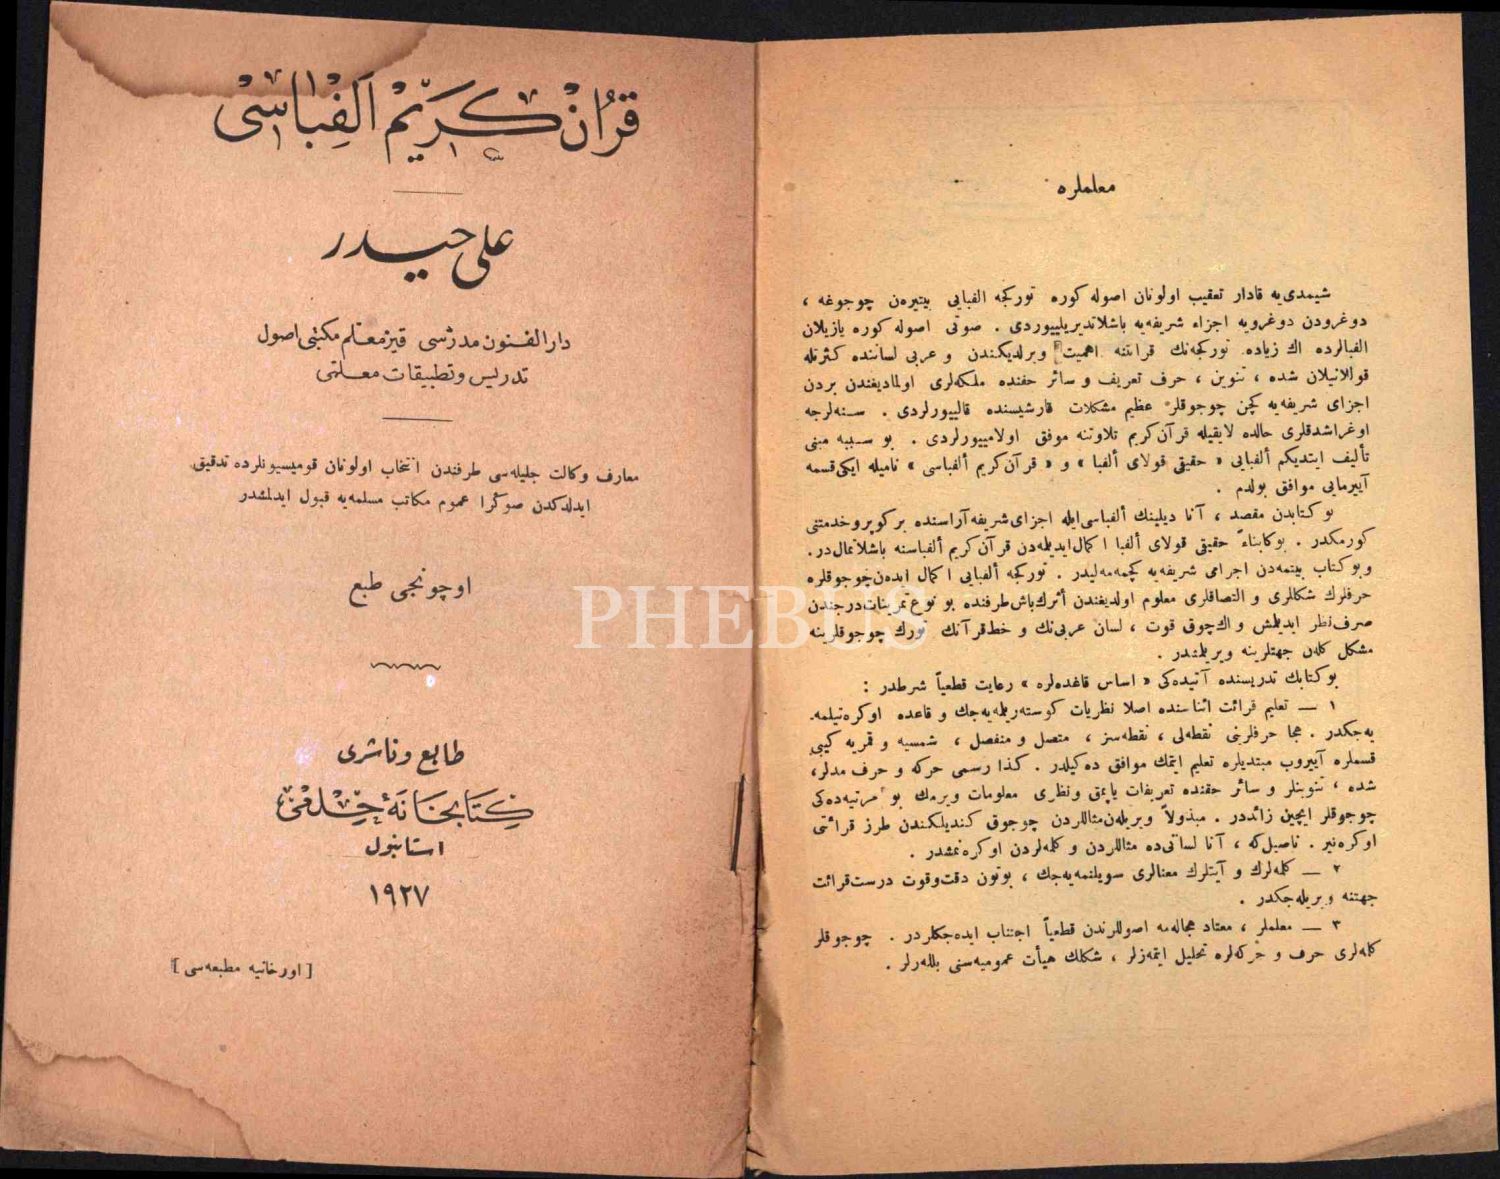 قرآن كريم الفباسى
على حيدر
دارالفنون مدرسى قيز معلم مكتبى اصول
تدريس وتطبيقات معلمى
معارف وكالت جليله‌سى طرفندن انتخاب اولونان قوميسيونلرده تدقيق
ايدلدكدن صوڭرا عموم مكاتب مسلمه‌يه قبول ايدلمشدر
اوچونجى طبع
طابع وناشرى
كتابخانهٔ حلمى
استانبول
١٩٢٧
[ اورخانيه مطبعه‌سى ]
معلملره
شيمدى‌يه قادار تعقيب اولونان اصوله كوره توركجه الفبايى بيتيره‌ن چوجوغه ،
دوغرودن دوغرويه اجزاء شريفه‌يه باشلاتديريلييوردى . صوتى اصوله كوره يازيلان
الفبالرده اك زياده توركجه‌نك قرائتنه اهميت ويرلديكندن و عربى لساننده كثرتله
قوللانيلان شده ، تنوين ، حرف تعريف و سائر حقنده ملكه‌لرى اولماديغندن بردن
اجزاى شريفه‌يه كچن چوجوقلر عظيم مشكلات قارشيسنده قالييورلردى . سنه‌لرجه
اوغراشدقلرى حالده لايقيله قرآن كريم تلاوتنه موفق اولامييورلردى . بو سببه مبنى
تأليف ايتديكم ألفبايى « حقيقى قولاى ألفبا » و « قرآن كريم ألفباسى » ناميله ايكى قسمه
آييرمايى موافق بولدم .
بو كتابدن مقصد ، آنا ديلينك ألفباسى ايله اجزاى شريفه آراسنده بر كوپرو خدمتنى
كورمكدر . بوكا بناءً حقيقى قولاى ألفبا اكمال ايديلمه‌دن قرآن كريم ألفباسنه باشلاتمالى‌در .
وبو كتاب بيتمه‌دن اجزاى شريفه‌يه كچمه‌مه‌ليدر . توركجه ألفبايى اكمال ايده‌ن چوجوقلره
حرفلرك شكللرى و التصاقلرى معلوم اولديغندن أثرك باش طرفنده بو نوع تمرينات درجندن
صرف نظر ايديلمش و اك چوق قوت ، لسان عربى‌نك و خط قرآنك تورك چوجوقلرينه
مشكل كله‌ن جهتلرينه ويريلمشدر .
بو كتابك تدريسنده آتيده‌كى « اساس قاعده‌لره » رعايت قطعياً شرطدر :
١ — تعليم قرائت اثناسنده اصلا نظريات كوسته‌ريلميه‌جك و قاعده اوكره‌تيلمه‌
يه‌جكدر . هجا حرفلرينى نقطه‌لى ، نقطه‌سز ، متصل و منفصل ، شمسيه و قمريه كيبى
قسملره آييروب مبتديلره تعليم ايتمك موافق ده‌كيلدر . كذا رسمى حركه و حرف مدلر ،
شده ، تنوينلر و سائر حقنده تعريفات ياپمق ونظرى معلومات ويرمك بو مرتبه‌ده‌كى
چوجوقلر ايچين زائددر . مبذولاً ويريله‌ن مثاللردن چوجوق كنديلكندن طرز قرائتى
اوكره‌نير . ناصيل كه ، آنا لسانى‌ده مثاللردن و كله‌لردن اوكره‌نمشدر .
٢ — كله‌لرك و آيتلرك معنالرى سويلنمه‌يه‌جك ، بوتون دقت وقوت درست قرائت
جهتنه ويريله‌جكدر .
٣ — معلملر ، معتاد هجاله‌مه اصوللرندن قطعياً اجتناب ايده‌جكلردر . چوجوقلر
كله‌لرى حرف و حركه‌لره تحليل ايتمه‌زلر ، شكلك هيأت عموميه‌سنى بللـه‌رلر .
PHEBUS